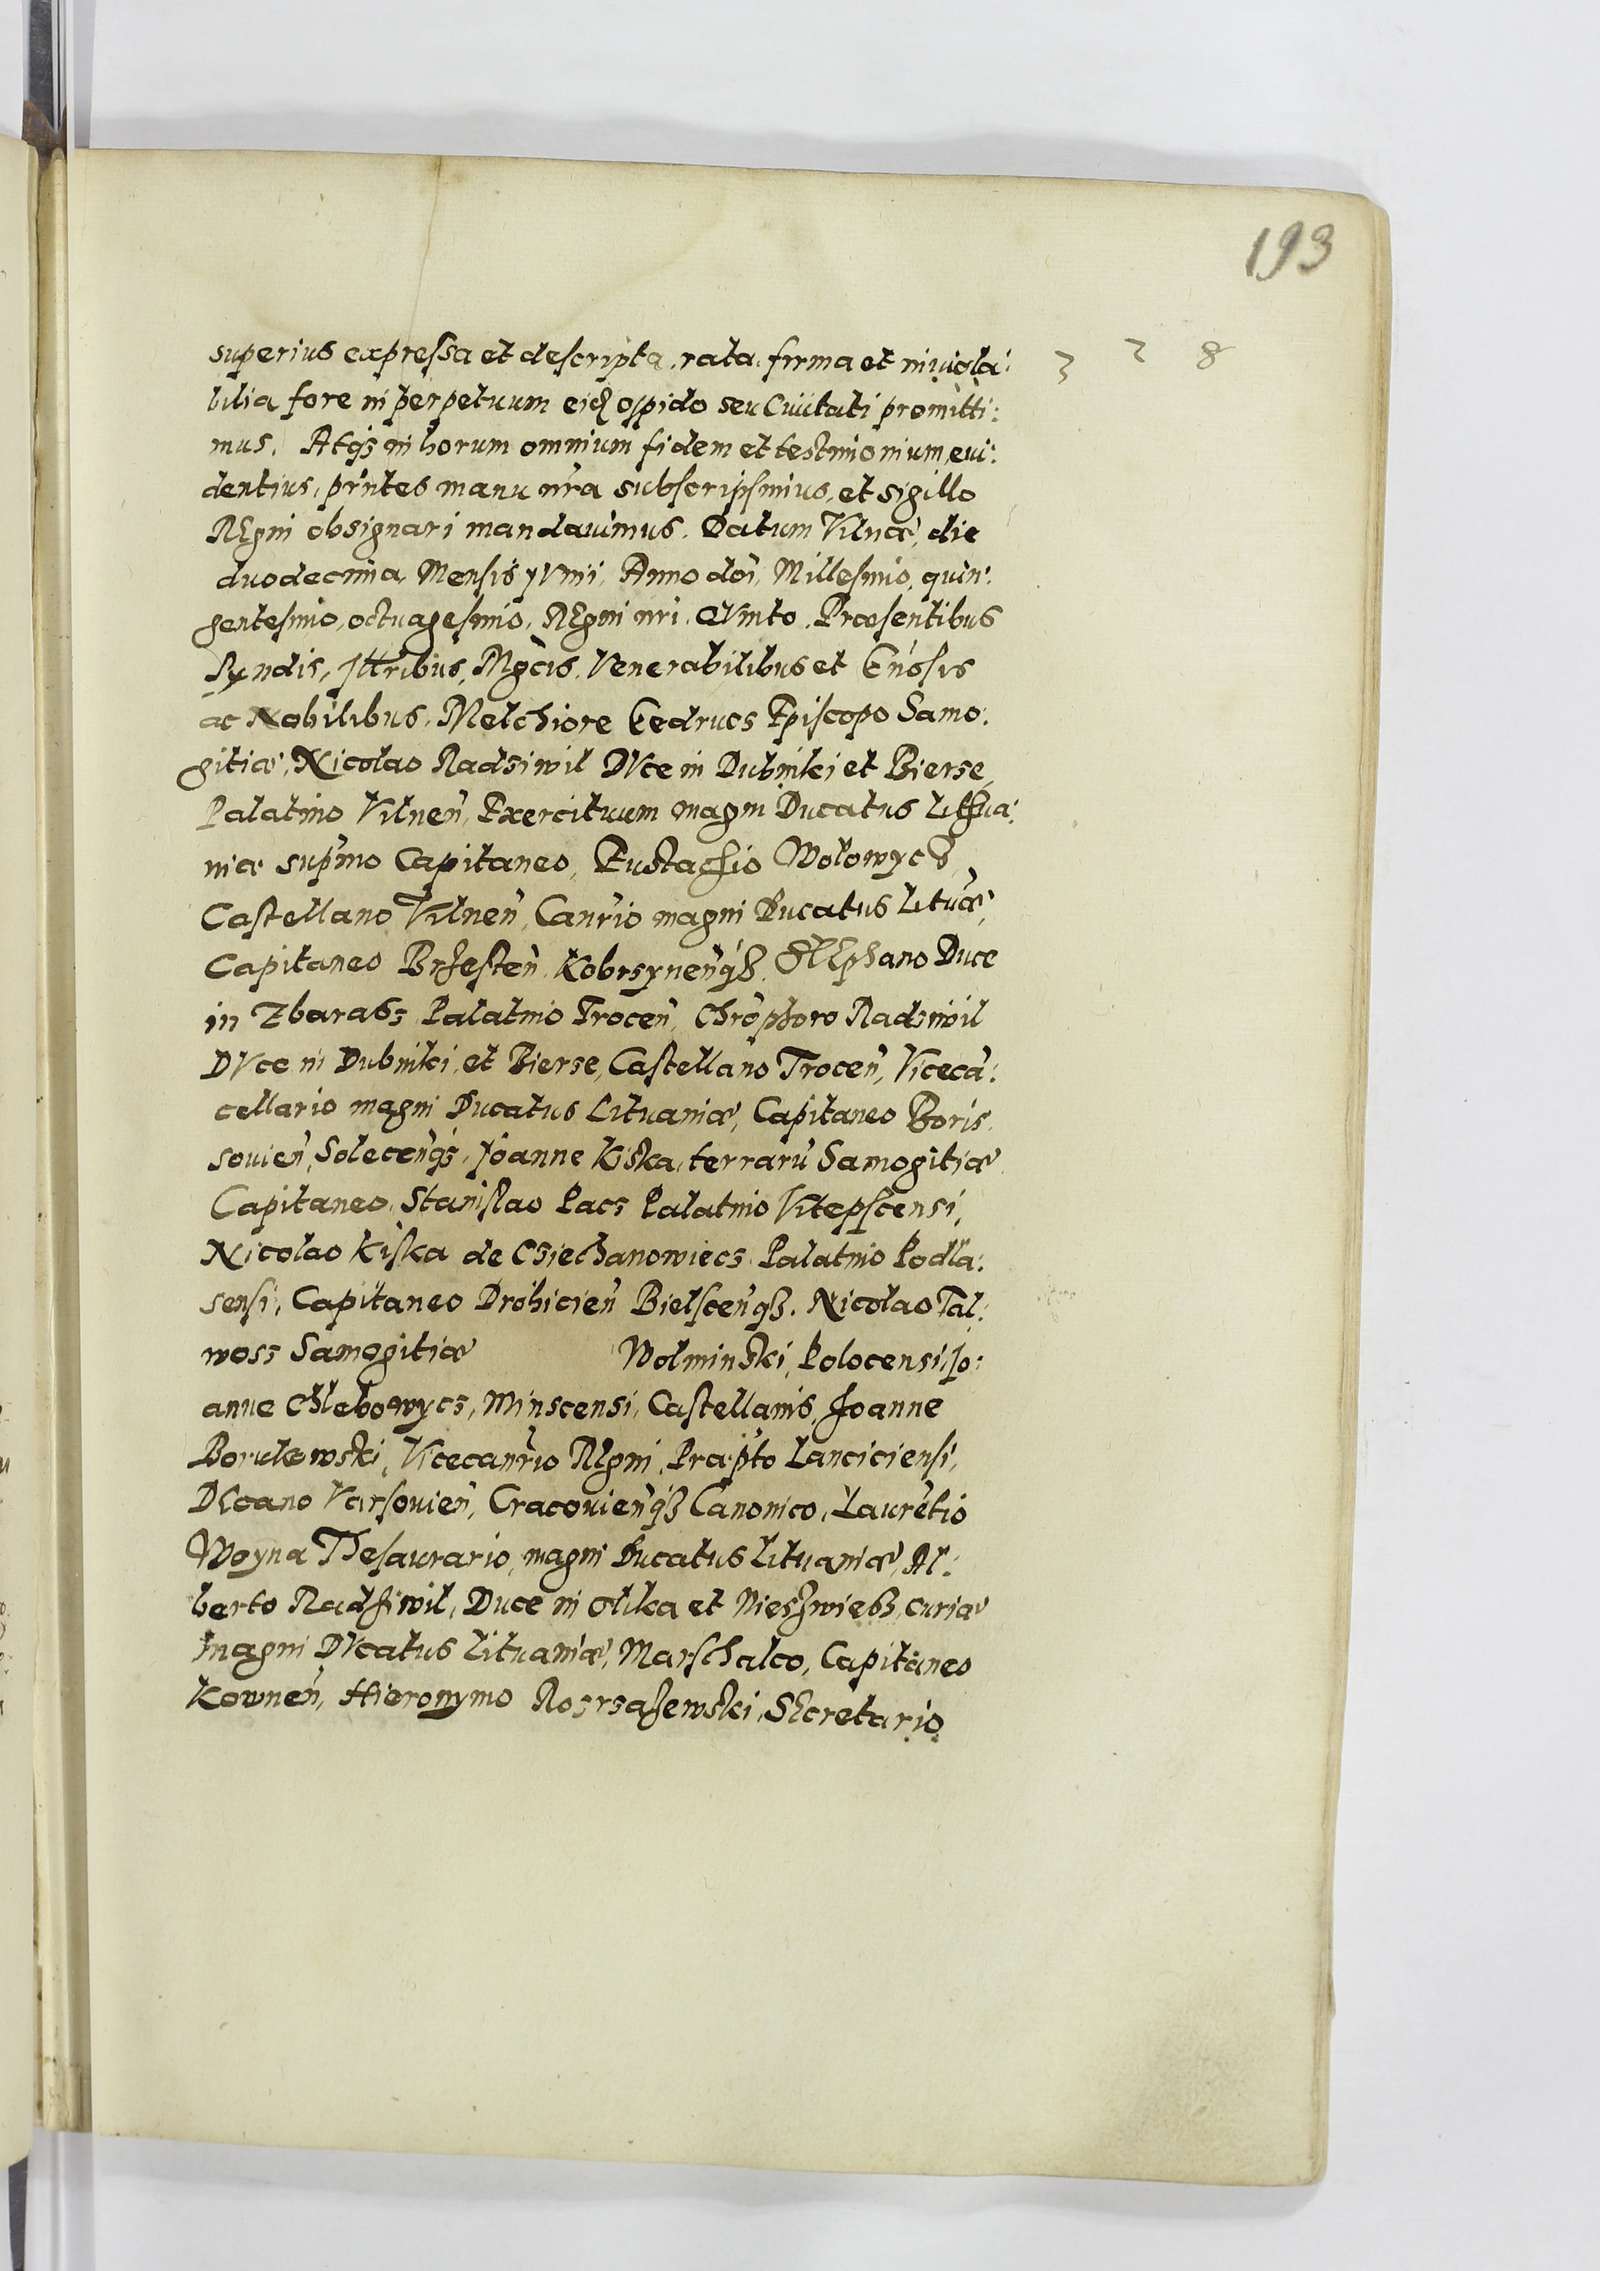 193
superius expressa et descripta, rata, firma et inviola: 3 2 8
bilia fore in perpetuum eid oppido seu Civitati promitti:
mus. Atqз in horum omnium fidem et testimonium, evi:
dentius, pr̃ntes manu nr̃a subscripsimus, et sigillo
Regni obsignari mandavimus. Datum Vilnæ, die
duodecima, Mensis yvnii, Anno doi, Millesimo, quin:
gentesimo, octuagesimo, Regni nri. Qvinto. Præsentibus
Rvndis, Illribus, Mgcis, Venerabilibus et Gn̄osis
ac Nobilibus, Melchiore Gedrucs Episcopo Samo:
gitiæ, Nicolao Radsiwil DVce in Dubinki et Bierse,
Palatino Vilnen̄, Exercituum magni Ducatus Lithua:
niæ sup̄mo Capitaneo, Eustachio Wolowycz
Castellano Vilnen̄, Can̄rio magni Ducatus Litv̄æ,
Capitaneo Brzesten̄, Kobrsynen̄qз, Stephano Duce
in Zbarass Palatino Trocen̄, Chrõphoro Radsiwil
DVce in Dubinki, et Bierse, Castellano Trocen̄, Vicecã:
cellario magni Ducatus Lituaniæ, Capitaneo Boris
sovien̄, Solecen̄qз, Joanne Kiska, terrarũ Samogitiæ
Capitaneo, Stanislao Pacs Palatino Vitepscensi,
Nicolao Kiska de Csiechanowiecs Palatino Podla:
sensi, Capitaneo Drohicien̄ Bielscen̄qз. Nicolao Tal:
woss Samogitiæ Wolminski, Polocensi, Jo:
anne Chlebowycs, Minscensi, Castellanis, Joanne
Borukowski, Vicecan̄rio Regni, Præp̃to Lanciciensi,
Decano Varsovien̄, Cracovien̄qз Canonico, Laurẽtio
Woyna Thesaurario, magni Ducatus Lituaniæ, Al:
berto Radziwil, Duce in Olika et Nieszwiesz, curiæ
magni DVcatus Lituaniæ, Marschalco, Capitaneo
Kownen̄, Hieronymo Rosrsazewski, Secretario